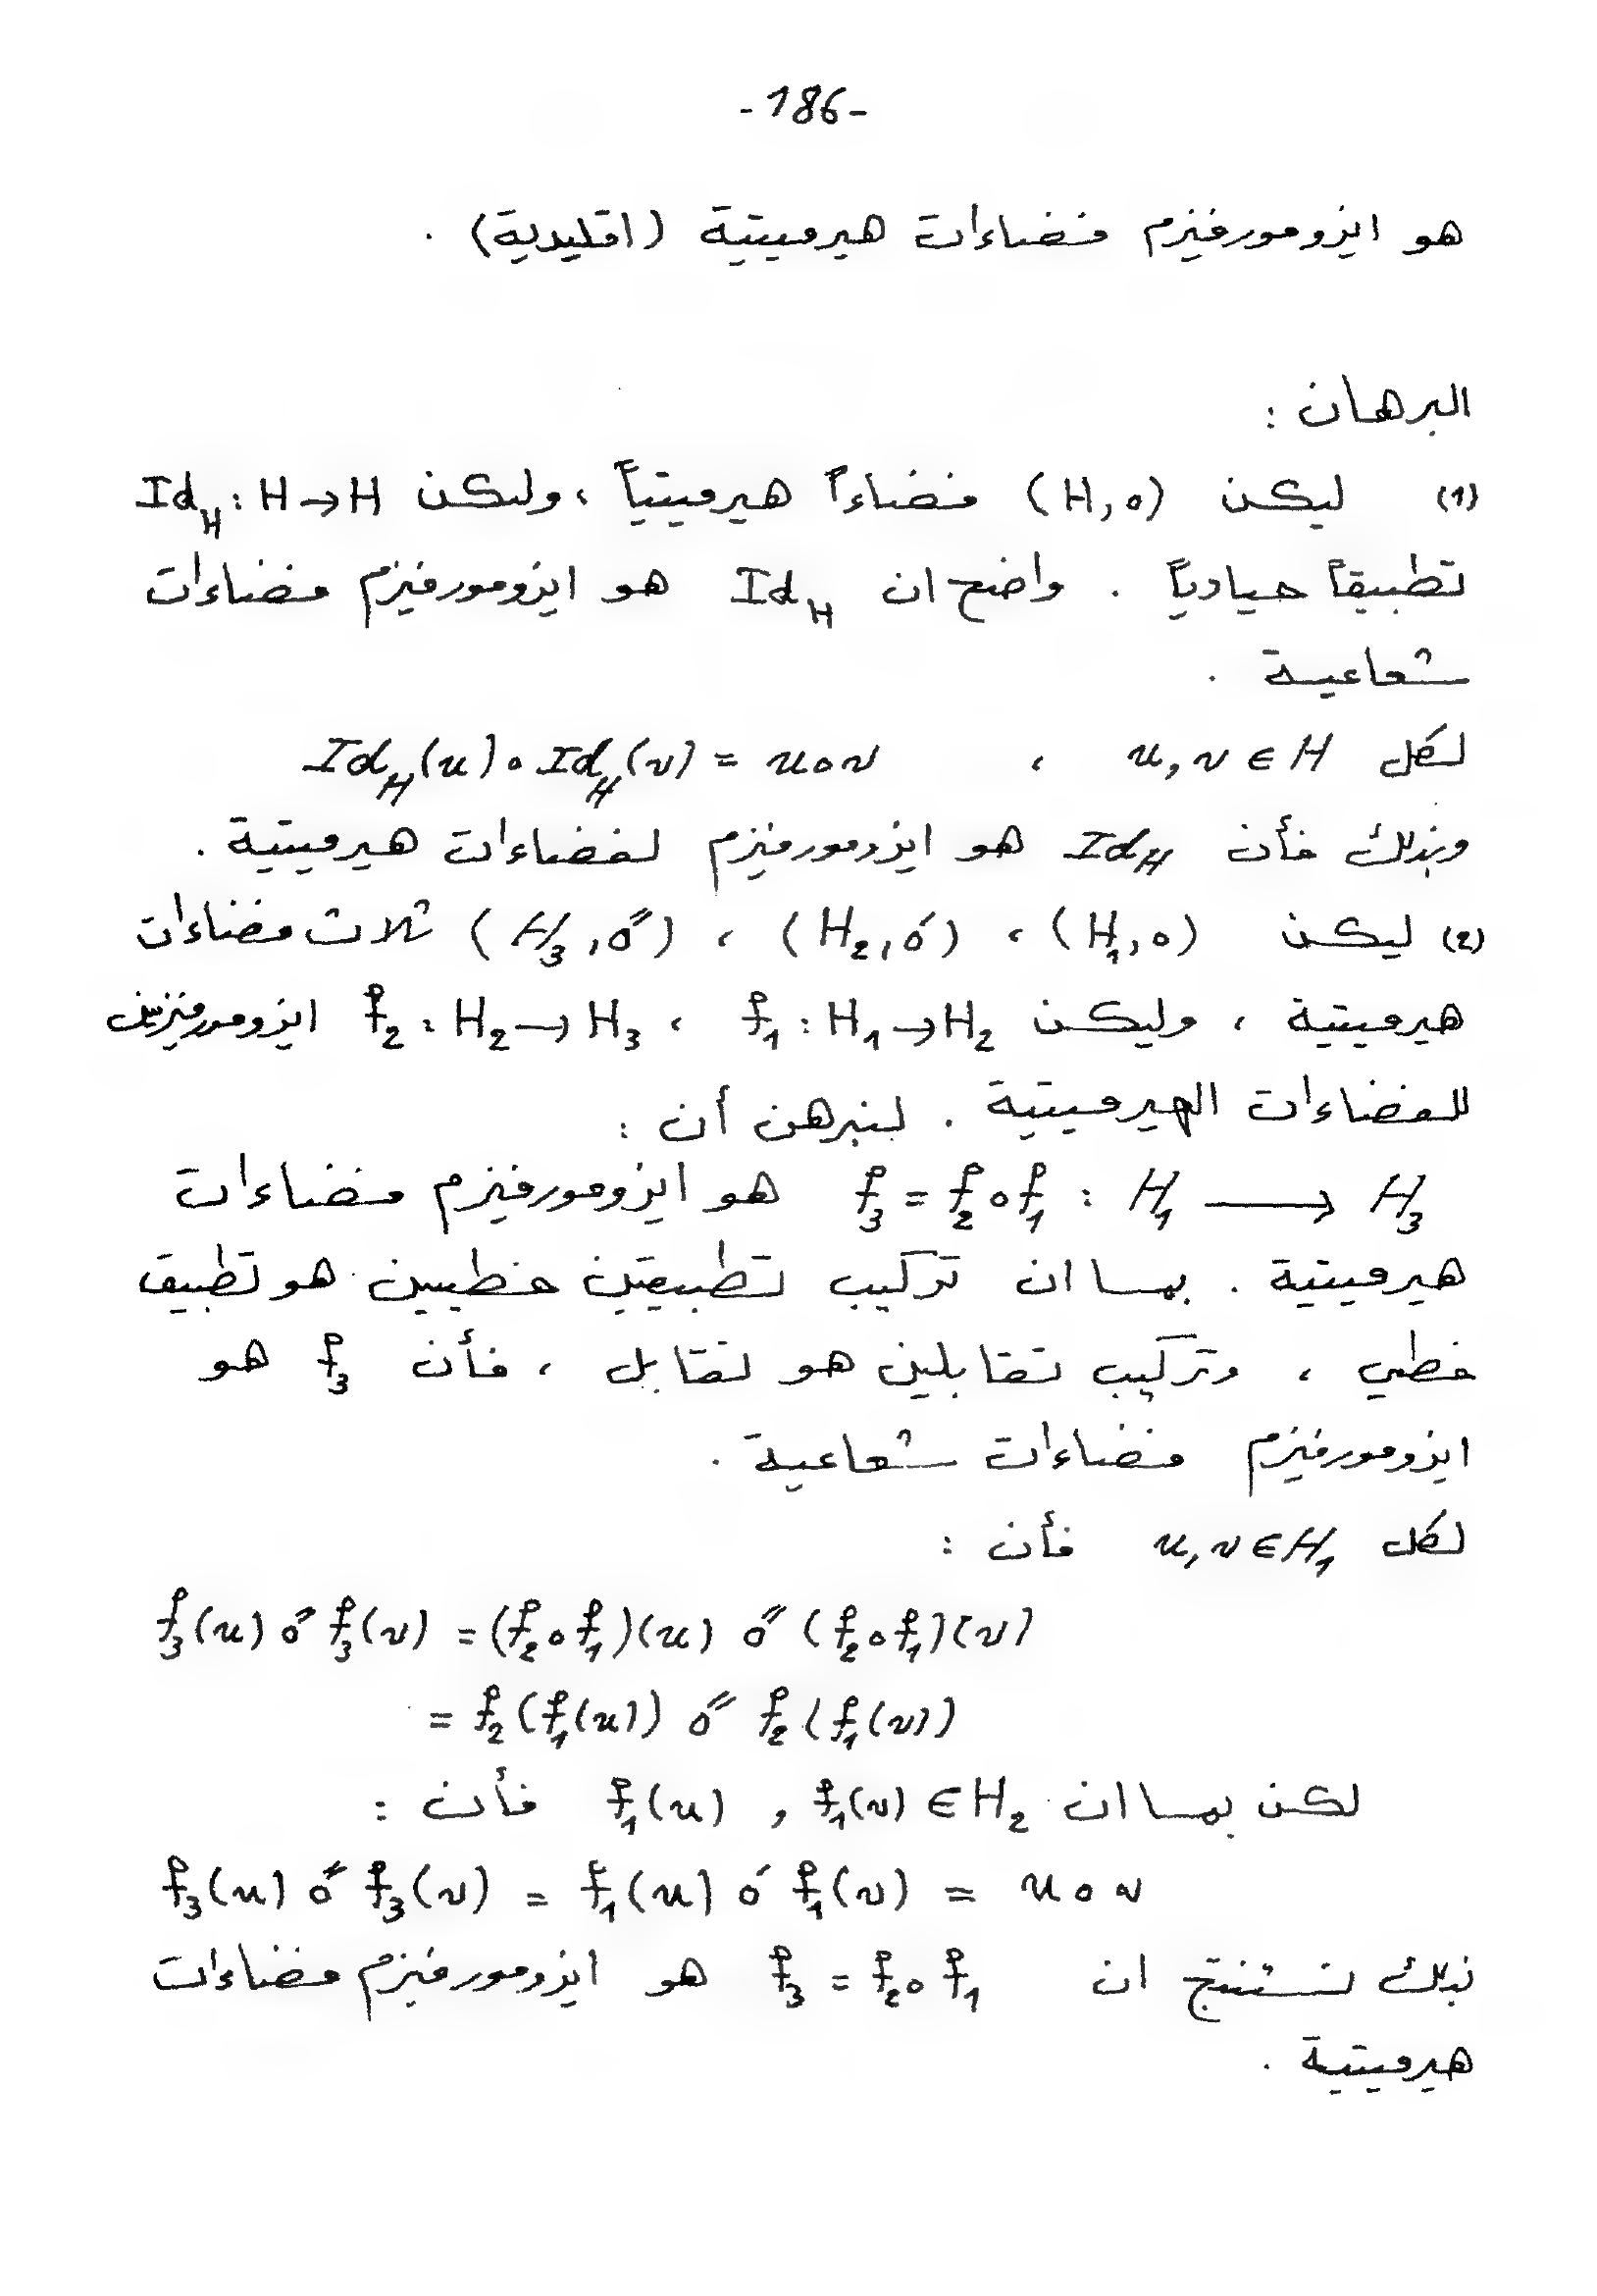 -186-
هو ايزومورفيزم فضاءات هيرميتية (اقليدية) .
البرهان :
(1) ليكن (H,∘) فضاءاً هيرميتياً ، وليكن Id_H : H→H
تطبيقاً حيادياً . واضح ان Id_H هو ايزومورفيزم فضاءات
شعاعية .
لكل u,v∈H ، Id_H(u)∘Id_H(v) = u∘v
وبذلك فأن Id_H هو ايزومورفيزم لفضاءات هيرميتية .
(2) ليكن (H₁,∘) ، (H₂,∘́) ، (H₃,∘̋) ثلاث فضاءات
هيرميتية ، وليكن f₁ : H₁→H₂ ، f₂ : H₂→H₃ ايزومورفيزمين
للفضاءات الهيرميتية . لنبرهن أن :
f₃ = f₂∘f₁ : H₁ ⟶ H₃ هو ايزومورفيزم فضاءات
هيرميتية . بما ان تركيب تطبيقين خطيين هو تطبيق
خطي ، وتركيب تقابلين هو تقابل ، فأن f₃ هو
ايزومورفيزم فضاءات شعاعية .
لكل u,v∈H₁ فأن :
f₃(u) ∘̋ f₃(v) = (f₂∘f₁)(u) ∘̋ (f₂∘f₁)(v)
= f₂(f₁(u)) ∘̋ f₂(f₁(v))
لكن بما ان f₁(u) , f₁(v) ∈ H₂ فأن :
f₃(u) ∘̋ f₃(v) = f₁(u) ∘́ f₁(v) = u∘v
نستنتج ان f₃ = f₂∘f₁ هو ايزومورفيزم فضاءات
هيرميتية .